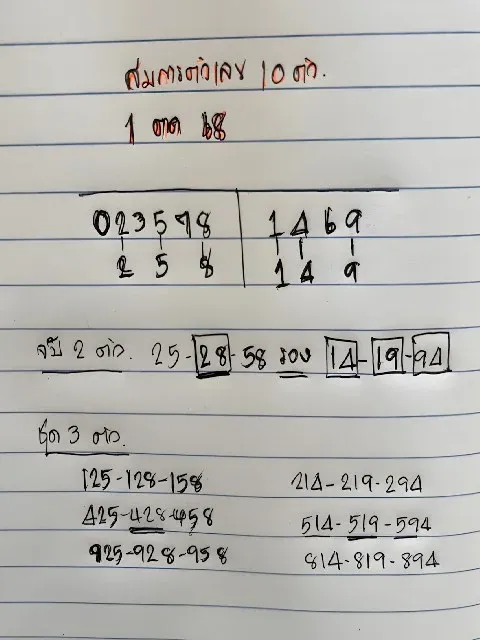 สมการตัวเลข 10 ตัว.
1 ตค 68
023578 1469
2 5 8 1 4 9
จับ 2 ตัว. 25-28-58 รอง 14-19-94
ชุด 3 ตัว.
125-128-158 214-219-294
425-428-458 514-519-594
925-928-958 814-819-894